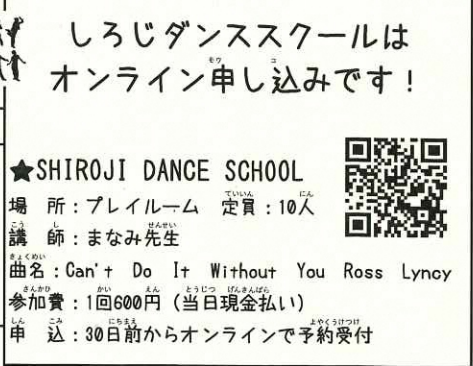 しろじダンススクールは
オンライン申し込みです！
★SHIROJI DANCE SCHOOL
場 所：プレイルーム 定員：10人
講 師：まなみ先生
曲名：Can't Do It Without You Ross Lyncy
参加費：1回600円（当日現金払い）
申 込：30日前からオンラインで予約受付